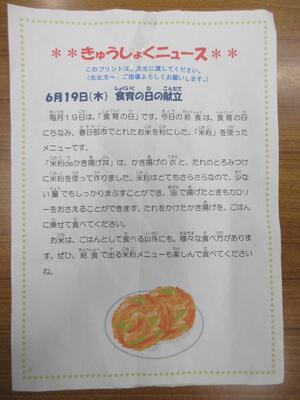 ＊＊きゅうしょくニュース＊＊
このプリントは、先生に渡してください。
（先生方へ：ご指導よろしくお願いします。）
6月19日（木） 食育の日の献立
毎月１９日は、「食育の日」です。今日の給食は、食育の日
にちなみ、春日部市でとれたお米を粉にした、「米粉」を使った
メニューです。
「米粉deかき揚げ丼」は、かき揚げの衣と、たれのとろみつけ
に米粉を使って作りました。米粉はとてもさらさらなので、少な
い量でもしっかりまぶすことができ、油で揚げたときもカロリ
ーをおさえることができます。たれをかけたかき揚げを、ごはん
に乗せて食べてください。
お米は、ごはんとして食べる以外にも、様々な食べ方がありま
す。ぜひ、給食で出る米粉メニューも楽しんで食べてください
ね。